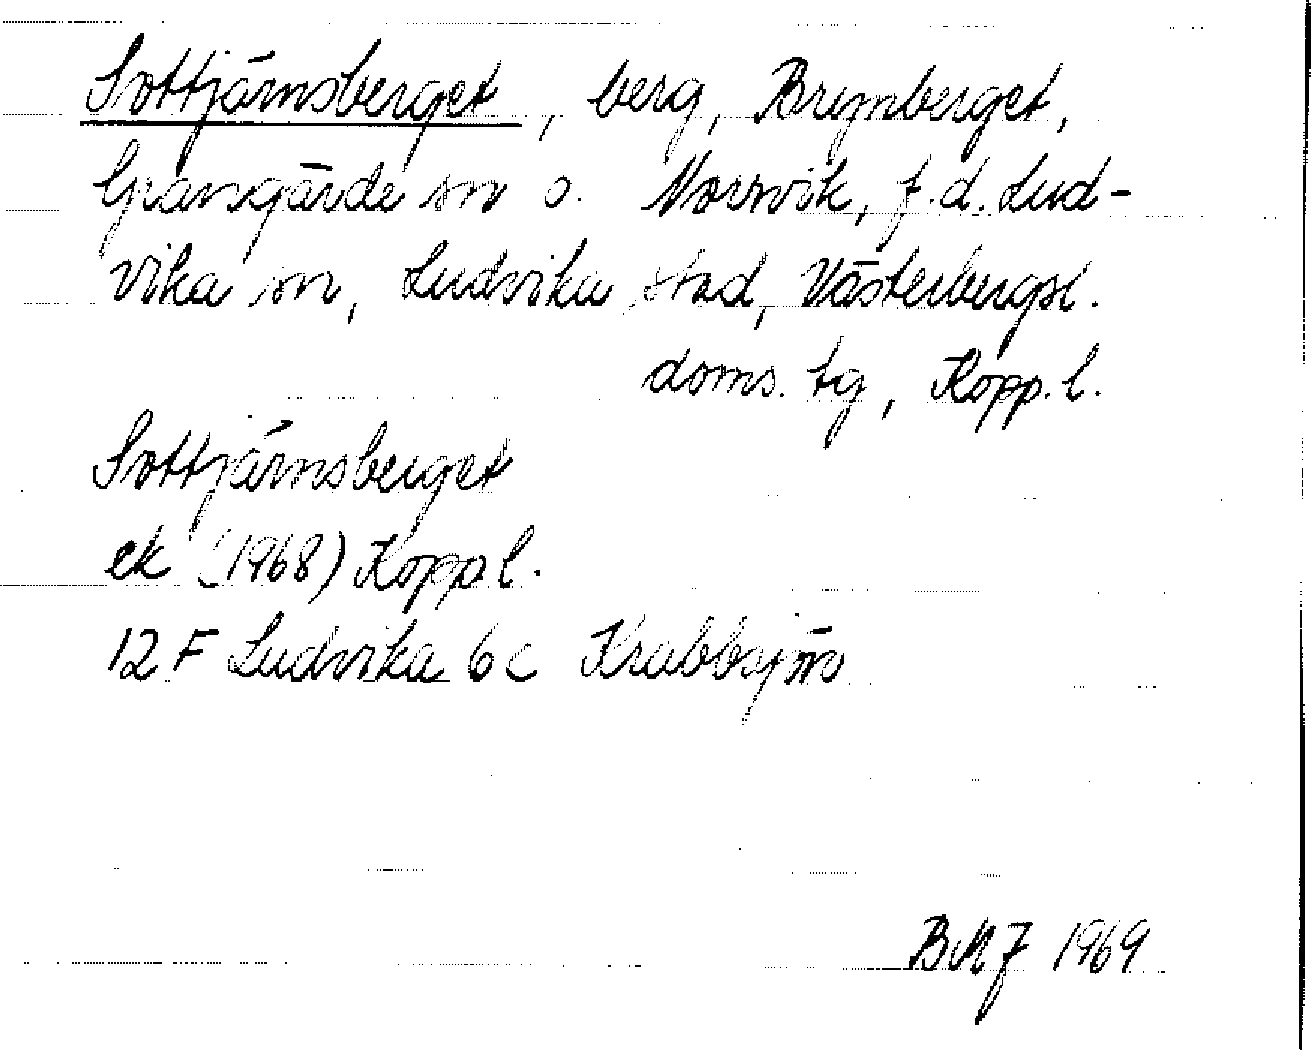 Sottjärnsberget, berg, Brynberget,
Grangärde sn o. Norrvik, f.d. Lud-
vika sn, Ludvika stad, Västerbergsl.
doms. tg, Kopp. l.
Sottjärnsberget
ek (1968) Kopp l.
12 F Ludvika 6 c
BMJ 1969